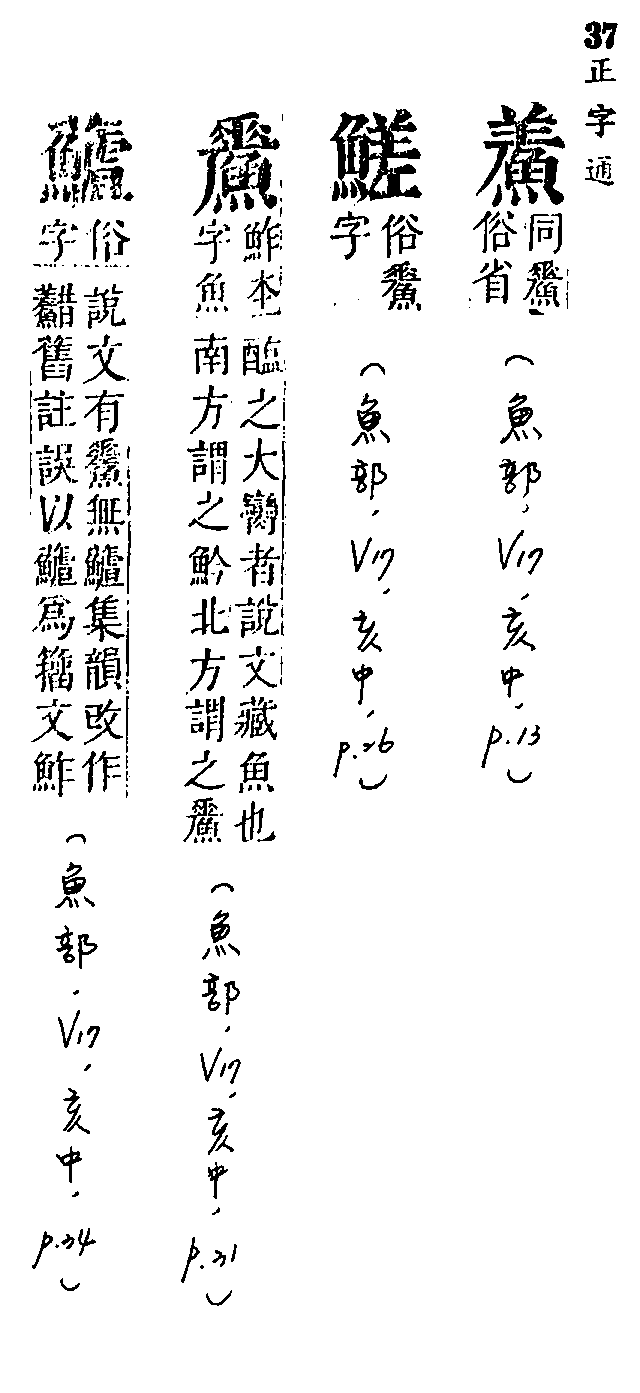 37 正字通
鮺
同
俗省
（魚部，V17，亥中，p.13）
䱹
俗
字
（魚部，V17，亥中，p.26）
鮓本
字魚
醢之大臠者說文藏魚也
南方謂之䰼北方謂之
（魚部，V17，亥中，p.31）
䱜
俗
字
說文有無䱜集韻改作
舊註誤以䱜爲籀文鮓
（魚部，V17，亥中，p.34）